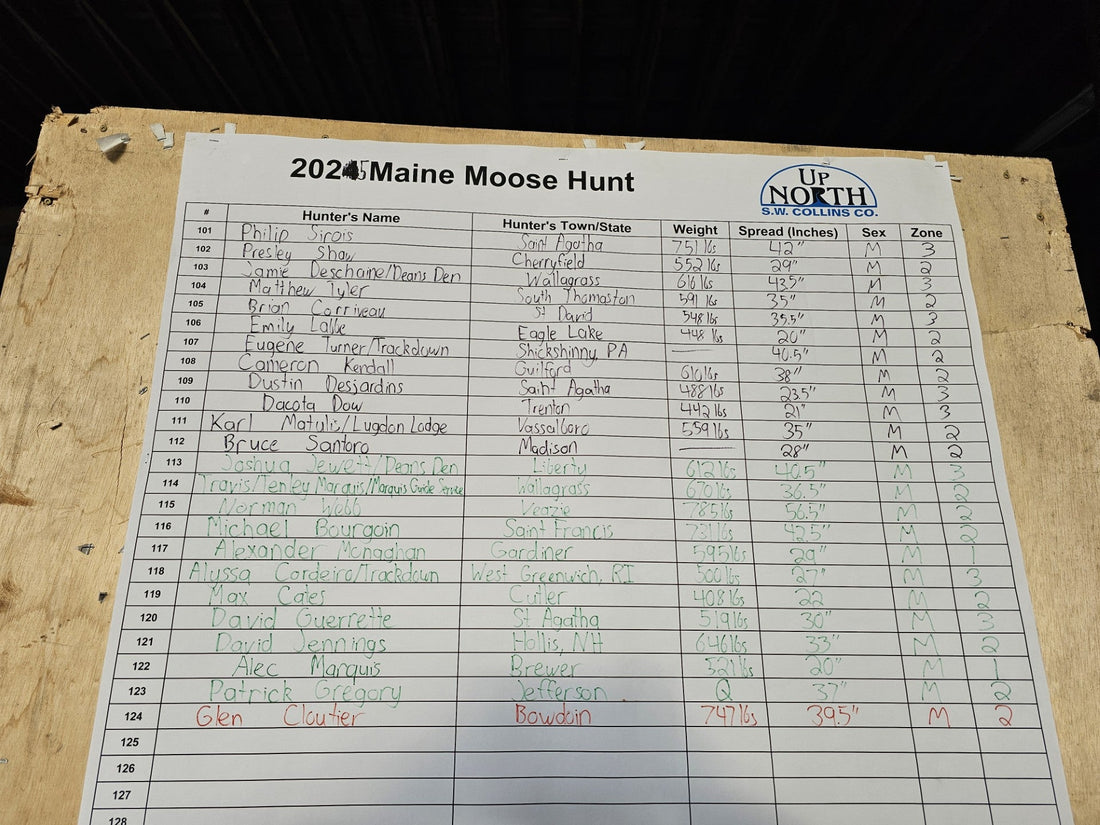 2025 Maine Moose Hunt
UP NORTH
S.W. COLLINS CO.
# Hunter's Name Hunter's Town/State Weight Spread (Inches) Sex Zone
101 Philip Sirois Saint Agatha 751 lbs 42" M 3
102 Presley Shaw Cherryfield 552 lbs 29" M 2
103 Jamie Deschaine/Deans Den Wallagrass 616 lbs 43.5" M 3
104 Matthew Tyler South Thomaston 591 lbs 35" M 2
105 Brian Corriveau St David 548 lbs 35.5" M 3
106 Emily Labbe Eagle Lake 448 lbs 20" M 2
107 Eugene Turner/Trackdown Shickshinny, PA — 40.5" M 2
108 Cameron Kendall Guilford 610 lbs 38" M 2
109 Dustin Desjardins Saint Agatha 488 lbs 23.5" M 3
110 Dacota Dow Trenton 442 lbs 21" M 3
111 Karl Matulis/Lugdon Lodge Vassalboro 559 lbs 35" M 2
112 Bruce Santoro Madison — 28" M 2
113 Joshua Jewett/Deans Den Liberty 612 lbs 40.5" M 3
114 Travis/Tenley Marquis/Marquis Guide Service Wallagrass 670 lbs 36.5" M 2
115 Norman Webb Veazie 785 lbs 56.5" M 2
116 Michael Bourgoin Saint Francis 731 lbs 42.5" M 2
117 Alexander Monaghan Gardiner 595 lbs 29" M 1
118 Alyssa Cordeiro/Trackdown West Greenwich, RI 500 lbs 27" M 3
119 Max Cates Cutler 408 lbs 22 M 2
120 David Guerrette St Agatha 519 lbs 30" M 3
121 David Jennings Hollis, NH 646 lbs 33" M 2
122 Alec Marquis Brewer 521 lbs 20" M 1
123 Patrick Gregory Jefferson Q 37" M 2
124 Glen Cloutier Bowdoin 747 lbs 39.5" M 2
125
126
127
128